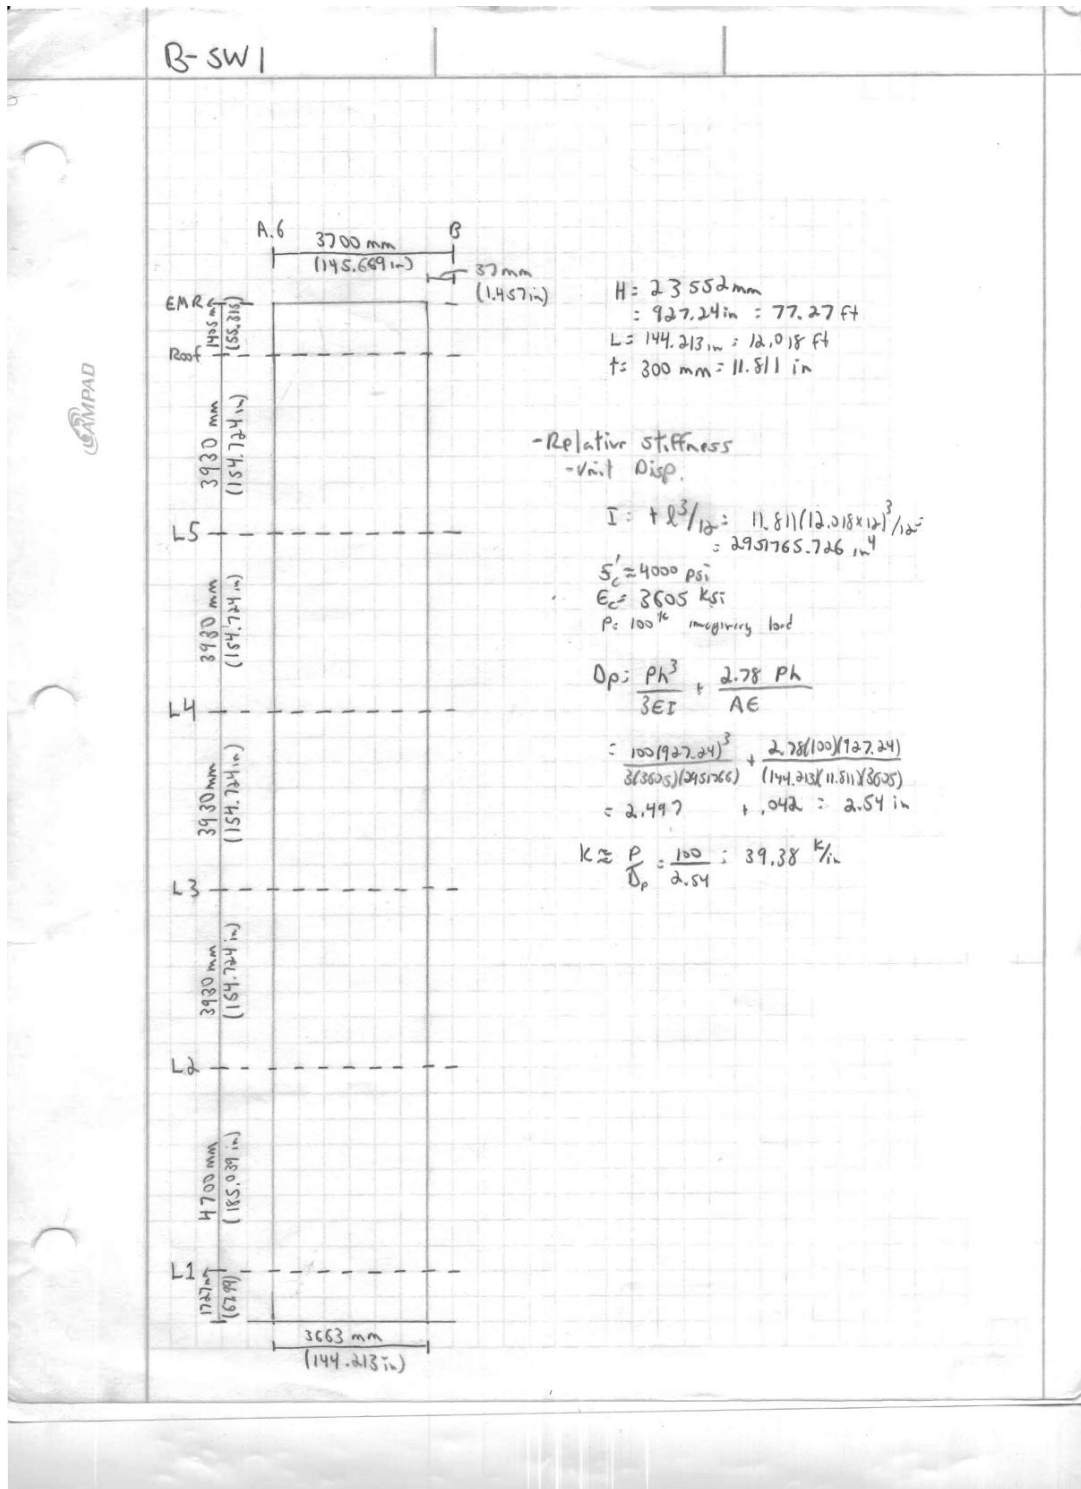 B-SW1
AMPAD
A.6
B
3700 mm
(145.669 in)
37mm
(1.457in)
EMR
1405 m
(55.315)
Roof
3930 mm
(154.724 in)
L5
3930 mm
(154.724 in)
L4
3930 mm
(154.724 in)
L3
3930 mm
(154.724 in)
L2
4700 mm
(185.039 in)
L1
1727 m
(67.99)
3663 mm
(144.213 in)
H = 23552mm
= 927.24in = 77.27 ft
L = 144.213 in = 12.018 ft
t = 300 mm = 11.811 in
-Relative stiffness
-Unit Disp.
I = t l³/12 = 11.811(12.018x12)³/12 =
= 2951765.726 in⁴
f'c ≈ 4000 psi
Ec = 3605 ksi
P = 100 k imaginary load
Dp = Ph³/3EI + 2.78 Ph/AE
= 100(927.24)³/3(3605)(2951766) + 2.78(100)(927.24)/(144.213)(11.811)(3605)
= 2.497 + .042 = 2.54 in
K ≈ P/Dp = 100/2.54 = 39.38 k/in